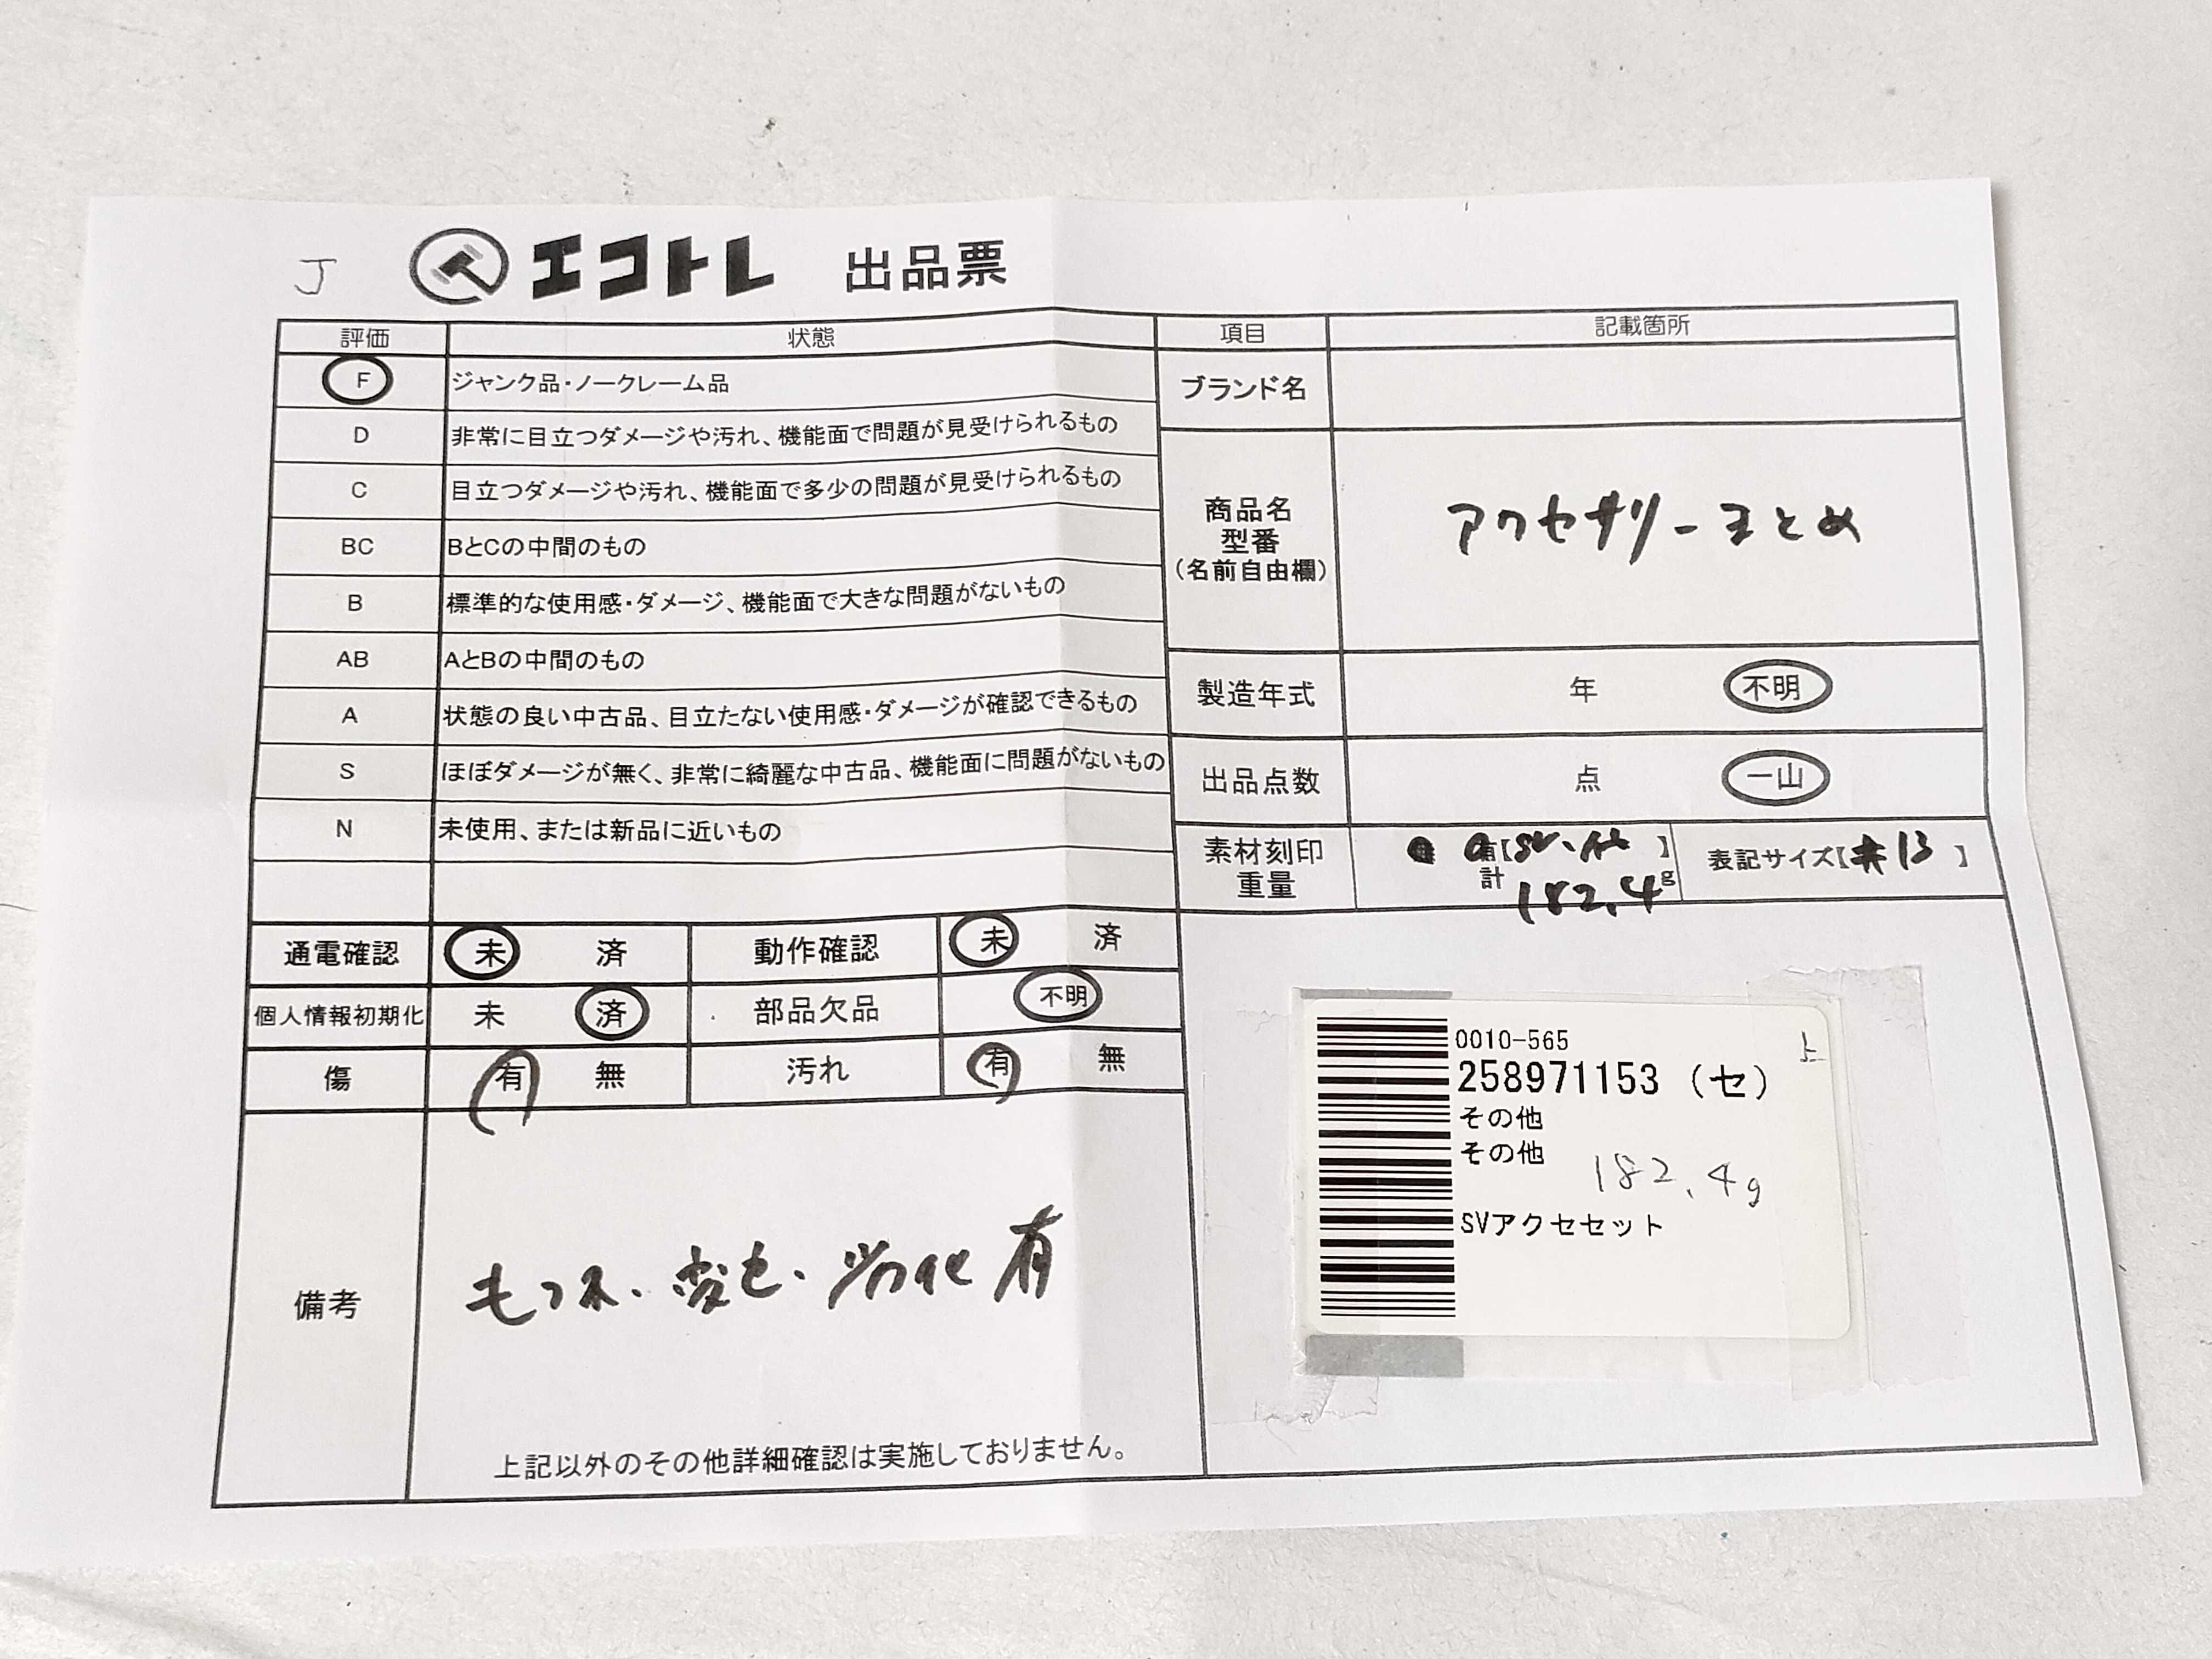 J エコトレ 出品票
評価 状態
F ジャンク品・ノークレーム品
D 非常に目立つダメージや汚れ、機能面で問題が見受けられるもの
C 目立つダメージや汚れ、機能面で多少の問題が見受けられるもの
BC BとCの中間のもの
B 標準的な使用感・ダメージ、機能面で大きな問題がないもの
AB AとBの中間のもの
A 状態の良い中古品、目立たない使用感・ダメージが確認できるもの
S ほぼダメージが無く、非常に綺麗な中古品、機能面に問題がないもの
N 未使用、または新品に近いもの
通電確認 未 済 動作確認 未 済
個人情報初期化 未 済 部品欠品 不明
傷 有 無 汚れ 有 無
備考
もつれ、変色、劣化有
上記以外のその他詳細確認は実施しておりません。
項目 記載箇所
ブランド名
商品名
型番
(名前自由欄)
アクセサリーまとめ
製造年式 年 不明
出品点数 点 一山
素材刻印 有【SV・他】 表記サイズ【#13】
重量 計 182.4g
0010-565
258971153 (セ)
その他
その他
182.4g
SVアクセセット